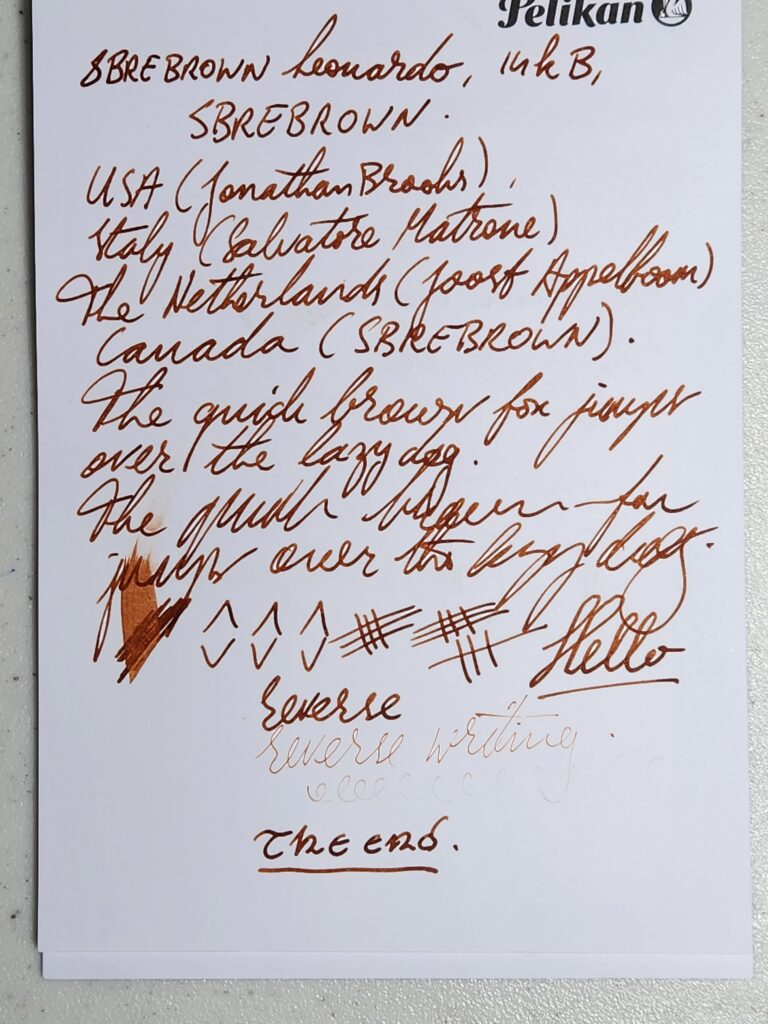 Pelikan
SBREBROWN Leonardo, 14k B,
SBREBROWN.
USA (Jonathan Brooks),
Italy (Salvatore Matrone)
The Netherlands (Joost Appelboom)
Canada (SBREBROWN).
The quick brown fox jumps
over the lazy dog.
The quick brown fox
jumps over the lazy dog.
Hello
Reverse
Reverse writing.
THE END.